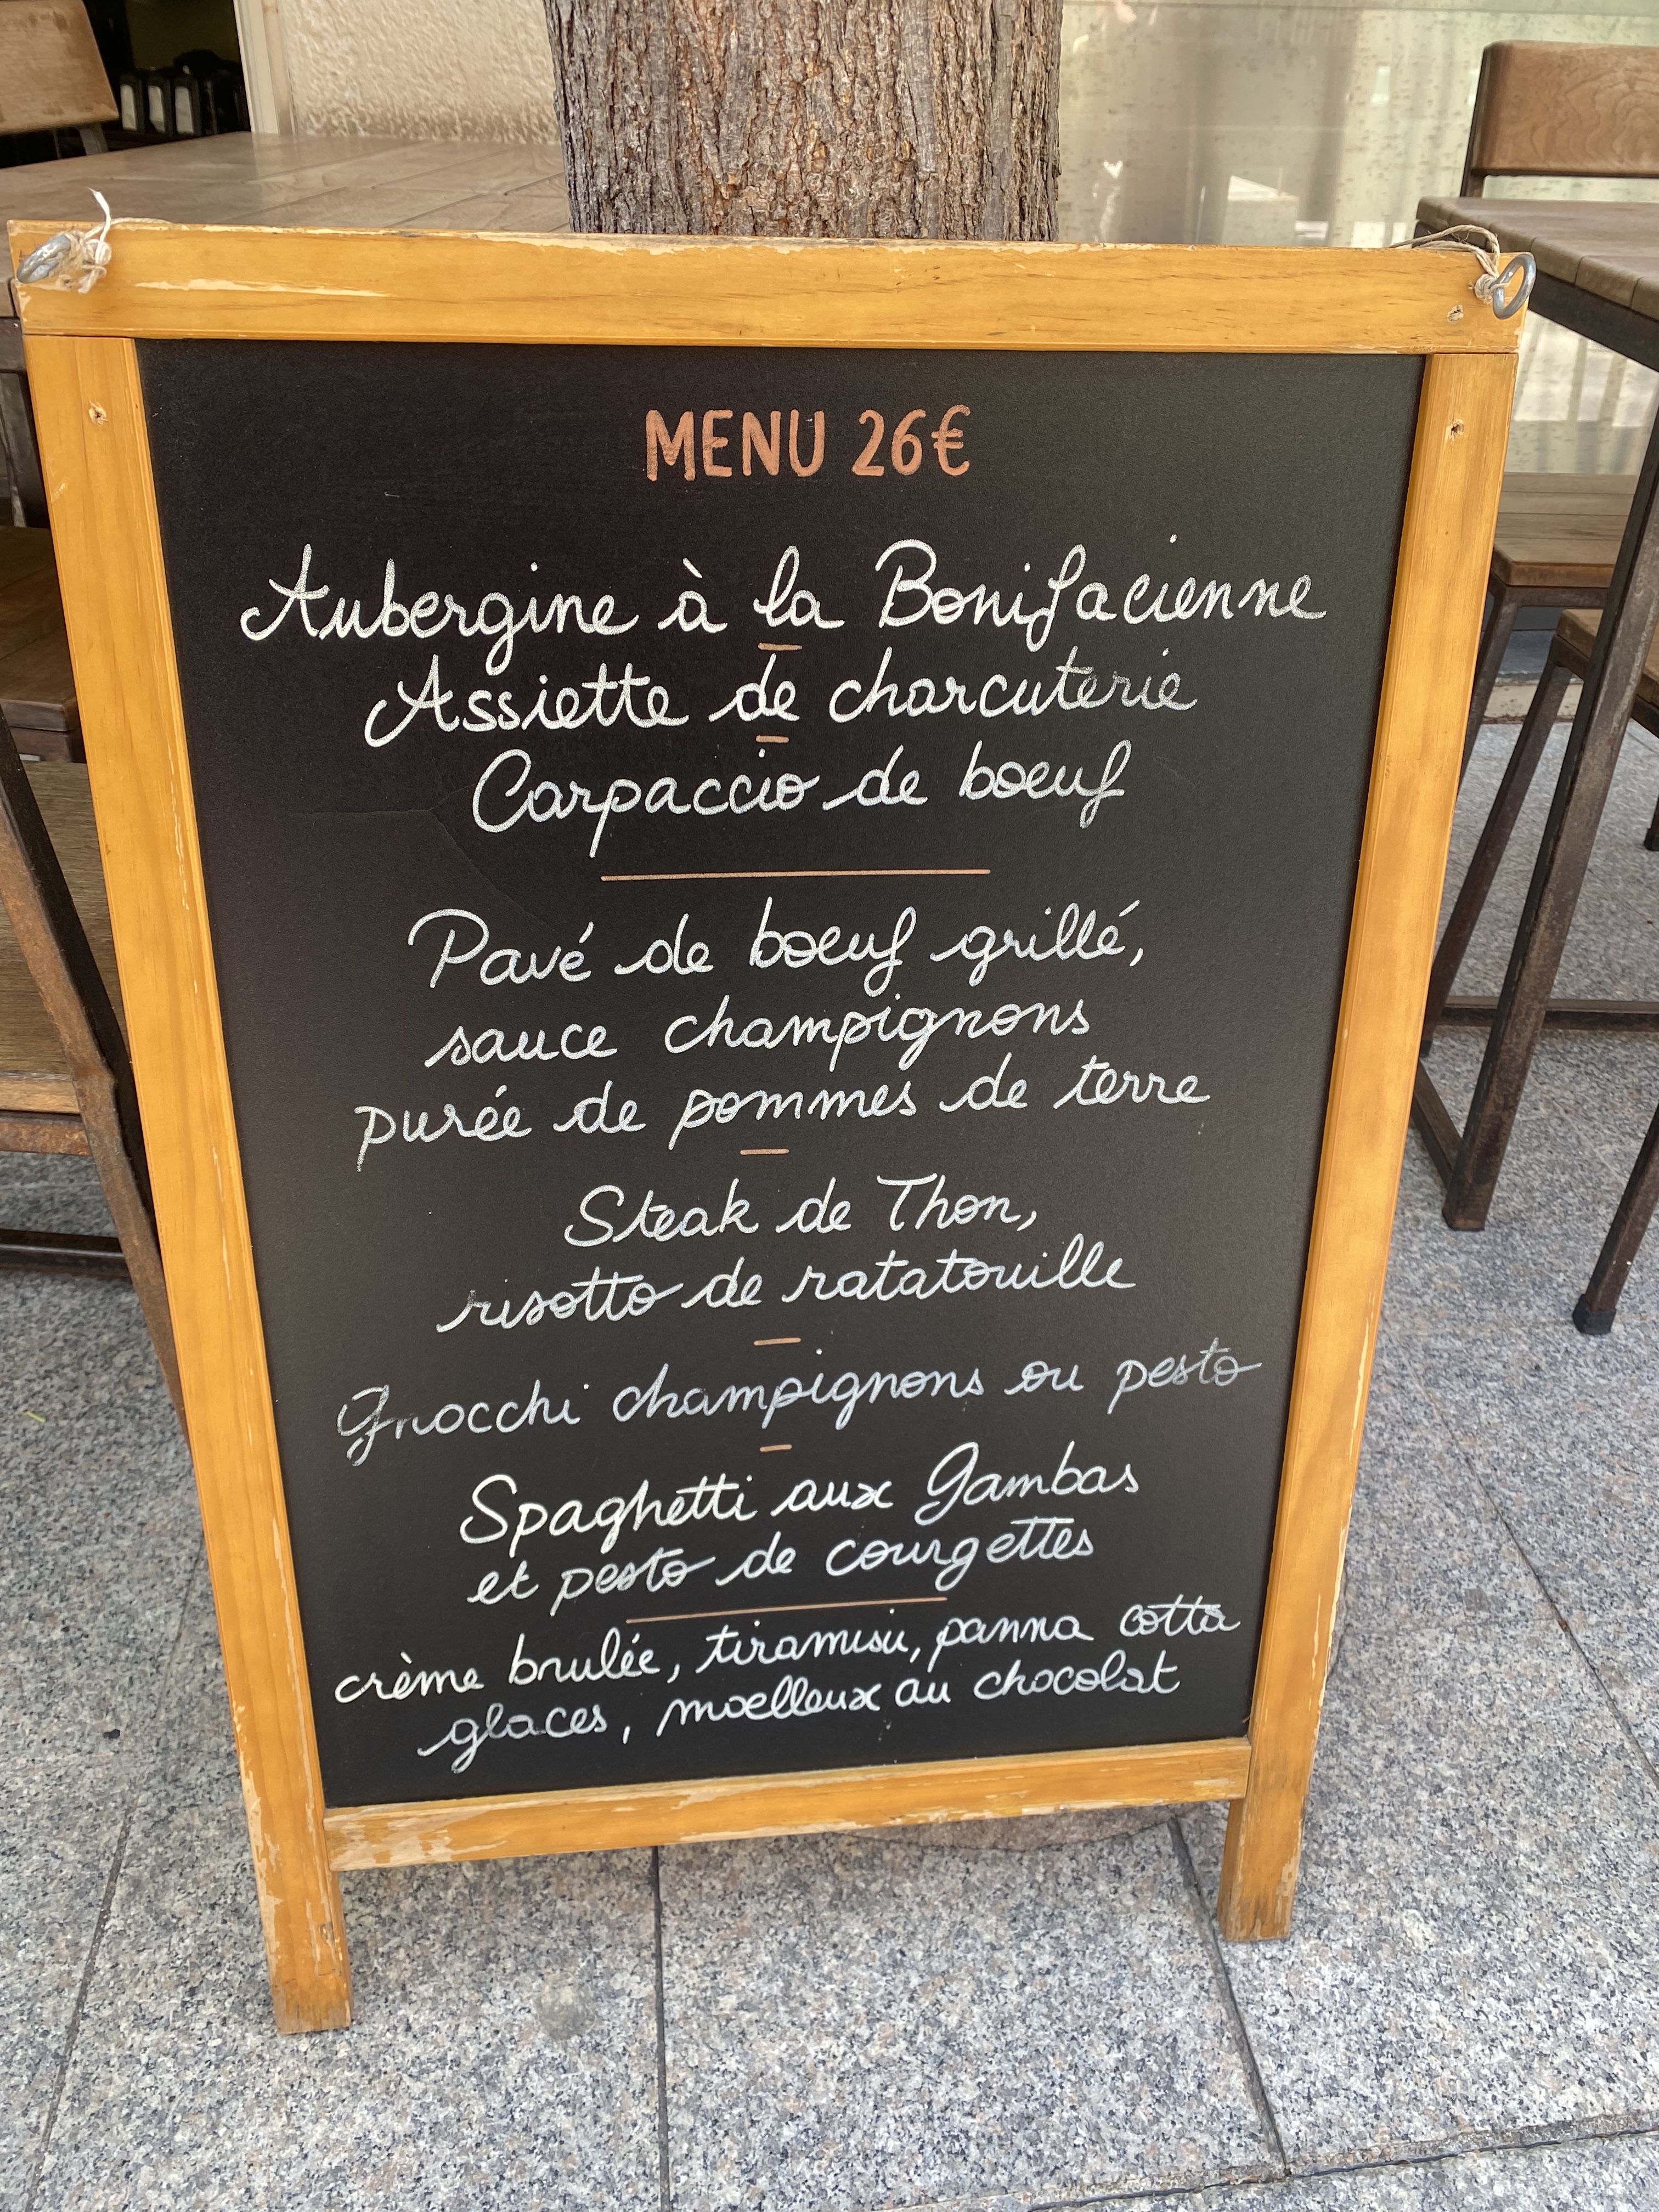 MENU 26€
Aubergine à la Bonifacienne
Assiette de charcuterie
Carpaccio de boeuf
Pavé de boeuf grillé,
sauce champignons
purée de pommes de terre
Steak de Thon,
risotto de ratatouille
Gnocchi champignons ou pesto
Spaghetti aux Gambas
et pesto de courgettes
crème brulée, tiramisu, panna cotta
glaces, moelleux au chocolat